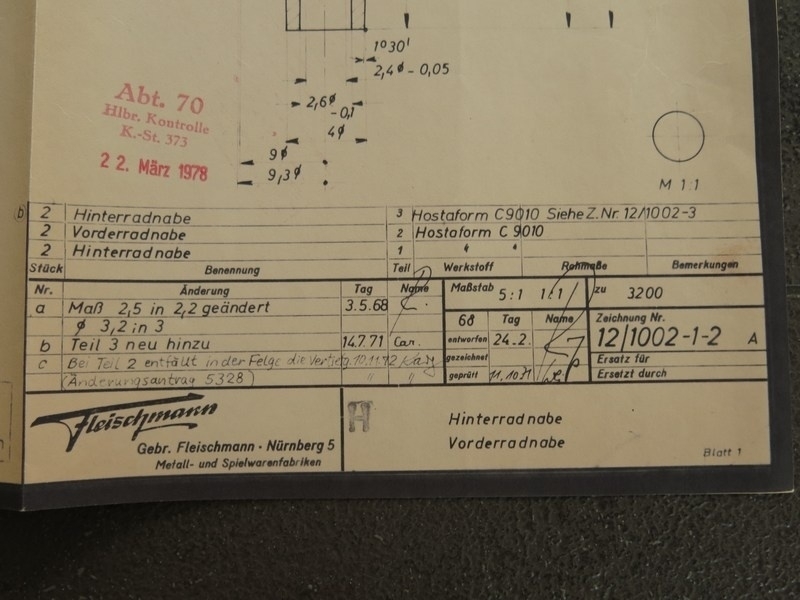 1°30'
2,4ϕ - 0,05
2,6ϕ -0,1
4ϕ
9ϕ
9,3ϕ
Abt. 70
Hlbr. Kontrolle
K.-St. 373
22. März 1978
M 1:1
b 2 Hinterradnabe 3 Hostaform C9010 Siehe Z. Nr. 12/1002-3
2 Vorderradnabe 2 Hostaform C 9010
2 Hinterradnabe 1 " "
Stück Benennung Teil Werkstoff Rohmaße Bemerkungen
Nr. Änderung Tag Name
a Maß 2,5 in 2,2 geändert 3.5.68
ϕ 3,2 in 3
b Teil 3 neu hinzu 14.7.71 Car.
c Bei Teil 2 entfällt in der Felge die
(Änderungsantrag 5328) " "
Maßstab 5:1 1:1 zu 3200
68 Tag Name
entworfen 24.2.
gezeichnet
geprüft 11.10.71
Zeichnung Nr.
12/1002-1-2 A
Ersatz für
Ersetzt durch
Fleischmann
Gebr. Fleischmann · Nürnberg 5
Metall- und Spielwarenfabriken
H
Hinterradnabe
Vorderradnabe
Blatt 1